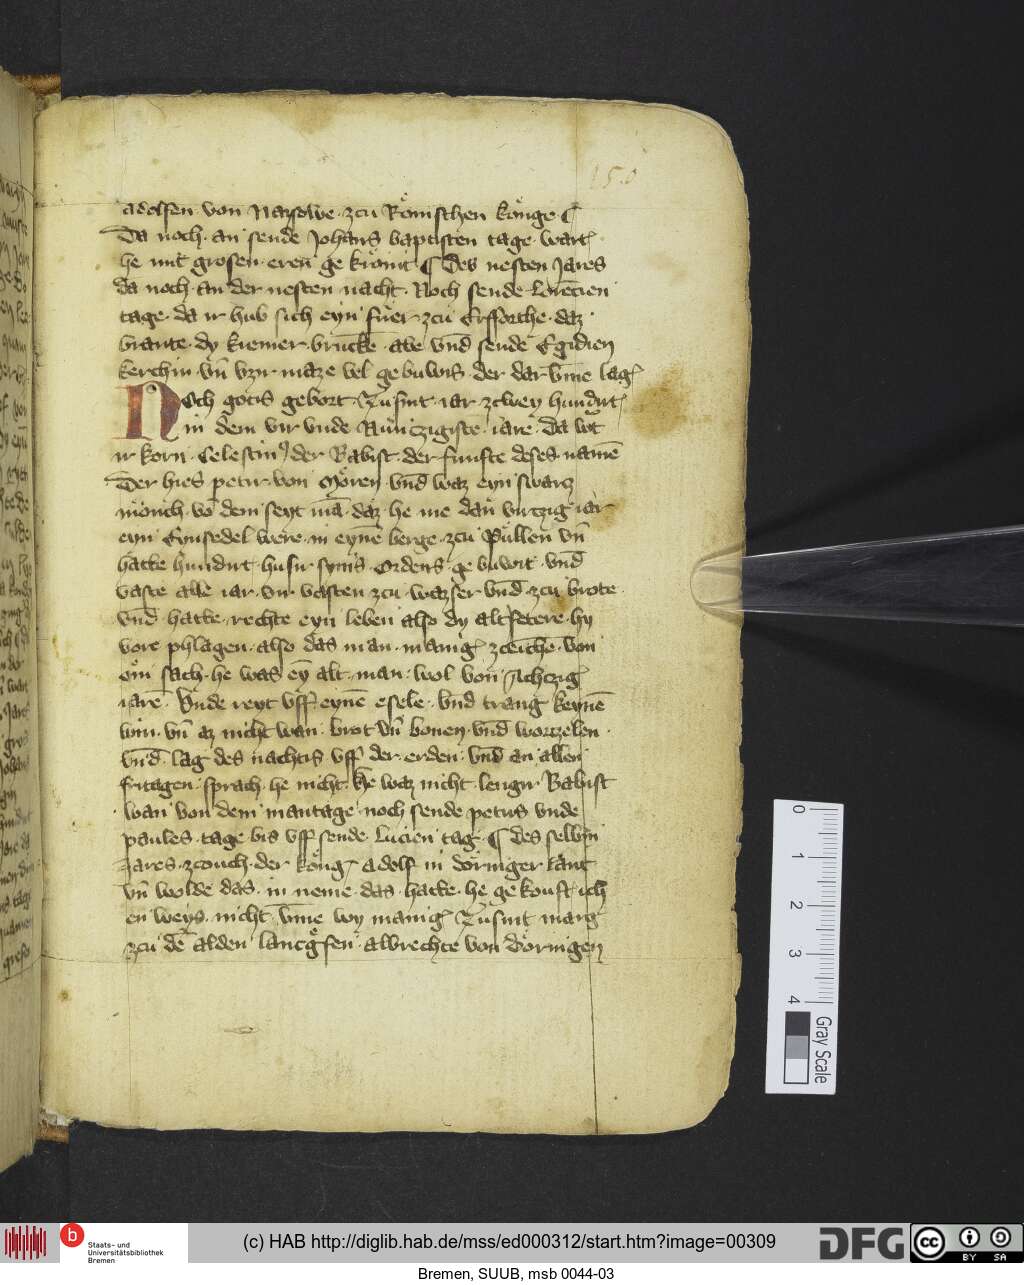 150
adolfen von Nassowe zcu Römischen könge ¶
Da noch an sende Johans baptisten tage wart
he mit grosen eren ge krönit ¶ Des nesten Jares
da noch an der nesten nacht Noch sende Lorēcien
tage da ir hub sich eyn fuer zcu Erfforthe daz
brante dy kremer brucke abe vnd sende Egidien
kerchin vn̄ vzir maze vel gebuwis der dar vm̄e lag
Noch gotis gebort Tusint iar zcwey hundirt
in dem vir vnde Nunczigiste iare da wt
ir korn Celestin der Babist der funfte deses namē
Der hies petir von Moren vnd waz eyn swarcz
mönch vō dem seyt mā daz he me dan virtzig iar
eyn Eynsedel were in eyne berge zcu Pullen vn̄
hatte hundirt husir synis Ordens ge buwit vnd
vaste alle iar vir vasten zcu wazser vnd zcu brote
vnd hatte rechte eyn leben also dy altfetere hy
vore phlagen also das man manig zceichē von
om sach he was ey alt man wol von Achczig
iarē Vnde reyt vff eynē esele vnd trang keynē
win vn̄ az nicht wan brot vn̄ bonen vnd worzelen
vnd lag des nachtis vff der erden vnd an allen
fritagen sprach he nicht he waz nicht lengir Babist
wan von dem mantage noch sende petirs vnde
paules tage bis vff sende Lucien tag ¶ des selbin
Jares zcouch der könig Adolf in döringer lant
vn̄ wolde das in neme das hatte he ge kouft ich
en weys nicht vm̄e wy manig Tusint marg
zcu dē alden lantgfen albrechte von döringen
0 1 2 3 4
Gray Scale
b
Staats- und
Universitätsbibliothek
Bremen
(c) HAB http://diglib.hab.de/mss/ed000312/start.htm?image=00309
DFG
cc BY SA
Bremen, SUUB, msb 0044-03